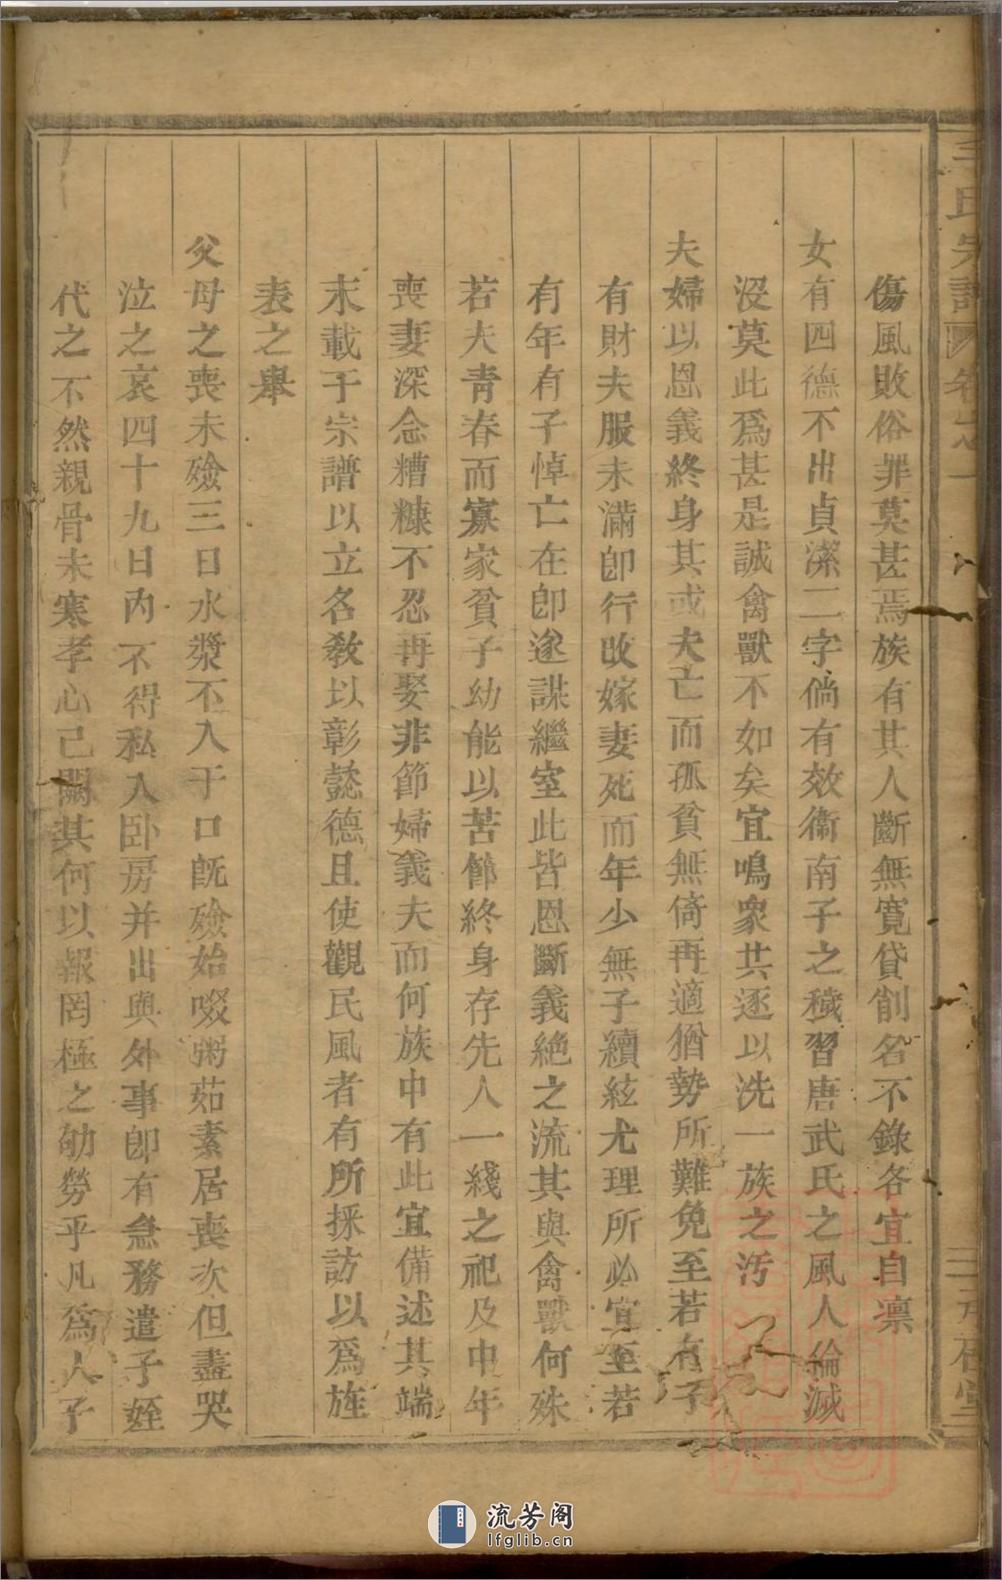 傷風敗俗罪莫甚焉族有其人斷無寬貸削名不錄各宜自凛
女有四德不出貞潔二字倘有效衛南子之穢習唐武氏之風人倫滅
沒莫此爲甚是誠禽獸不如矣宜鳴衆共逐以洗一族之污
夫婦以恩義終身其或夫亡而孤貧無倚再適猶勢所難免至若有子
有財夫服未滿卽行改嫁妻死而年少無子續絃尤理所必宜至若
有年有子悼亡在卽遂謀繼室此皆恩斷義絶之流其與禽獸何殊
若夫青春而寡家貧子幼能以苦節終身存先人一綫之祀及中年
喪妻深念糟糠不忍再娶非節婦義夫而何族中有此宜備述其端
末載于宗譜以立名敎以彰懿德且使觀民風者有所採訪以爲旌
表之舉
父母之喪未殮三日水漿不入于口旣殮始啜粥茹素居喪次但盡哭
泣之哀四十九日內不得私入卧房并出與外事卽有急務遣子姪
代之不然親骨未寒孝心已闕其何以報罔極之劬勞乎凡爲人子
氏宗譜 卷之一
堂
流芳阁
lfglib.cn